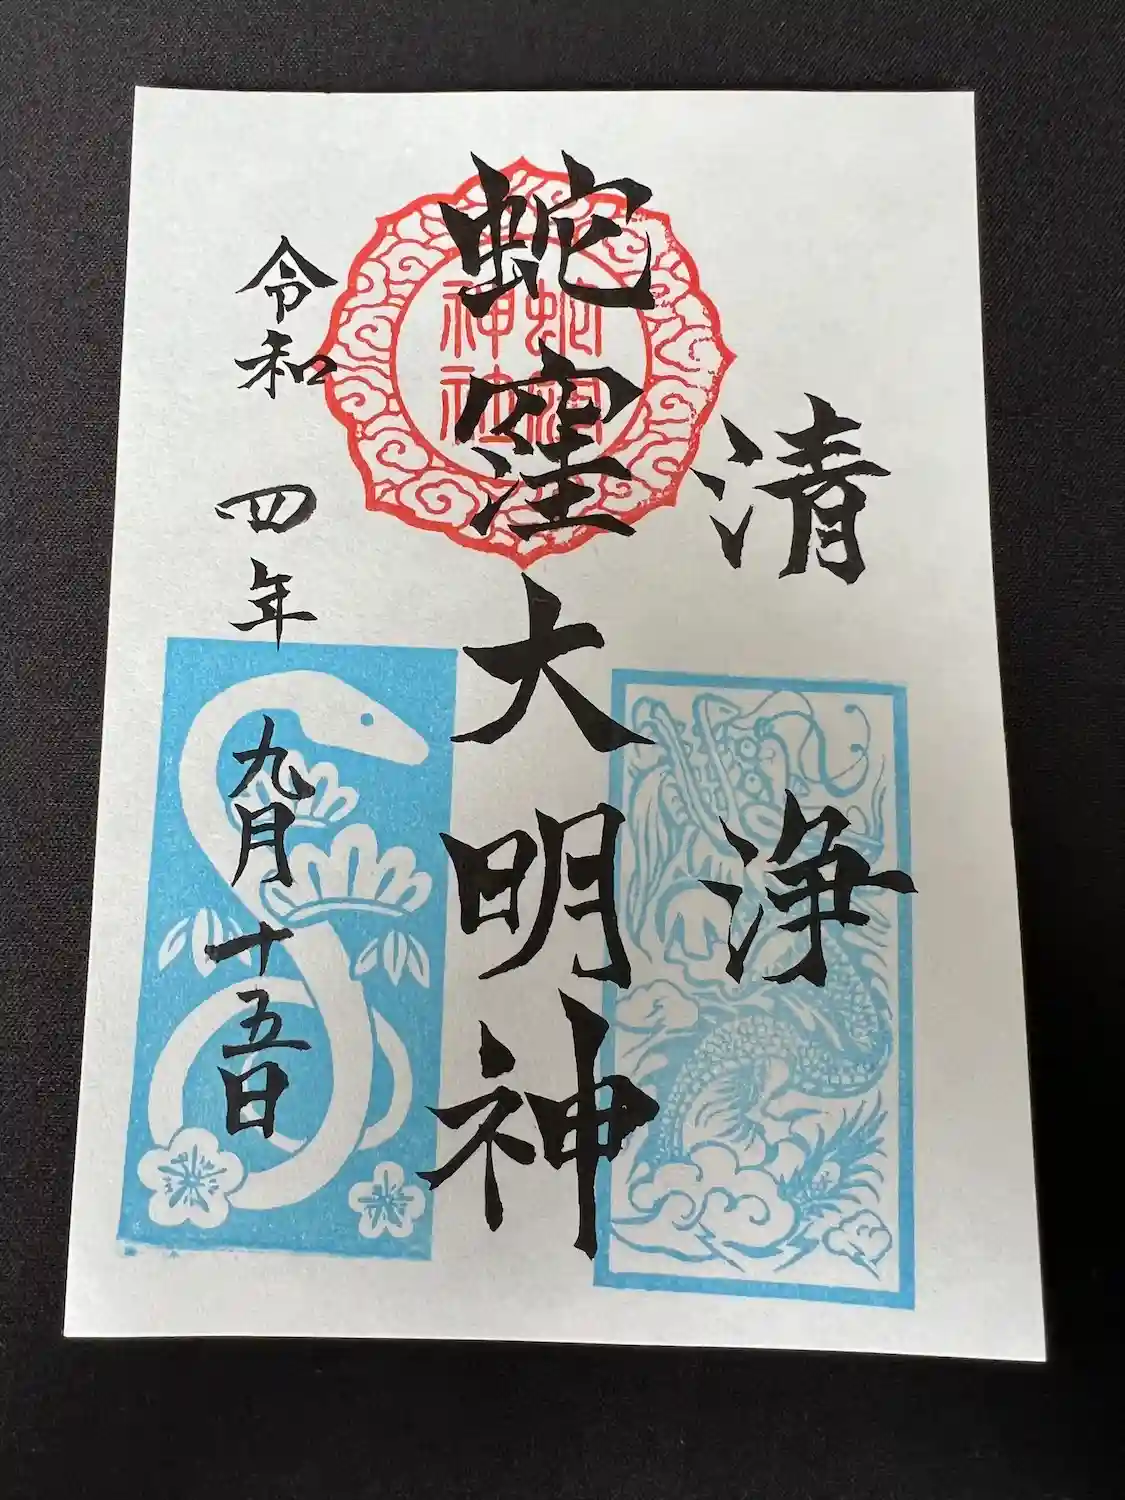 清浄
蛇窪大明神
蛇窪
神社
令和四年九月十五日